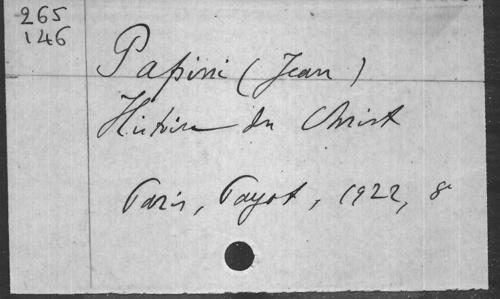 265
146
Papini (Jean)
Histoire du Christ
Paris, Payot, 1922, 8°